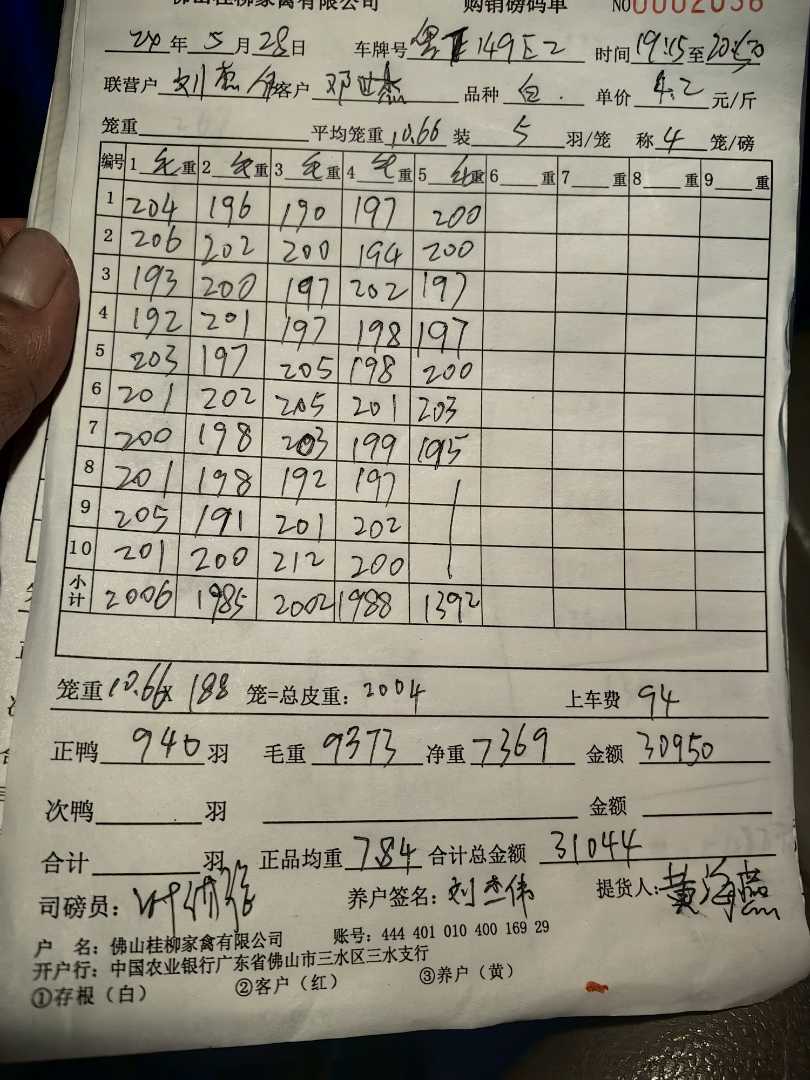 佛山桂柳家禽有限公司 购销磅码单 NO0002036
24年5月28日 车牌号 149E2 时间19:15至20:50
联营户 刘杰伟 客户 邓世杰 品种 白. 单价 4.2 元/斤
笼重 平均笼重10.66 装 5 羽/笼 称 4 笼/磅
编号 1 毛重 2 毛重 3 毛重 4 毛重 5 毛重 6 重 7 重 8 重 9 重
1 204 196 190 197 200
2 206 202 200 194 200
3 193 200 197 202 197
4 192 201 197 198 197
5 203 197 205 198 200
6 201 202 205 201 203
7 200 198 203 199 195
8 201 198 192 197
9 205 191 201 202
10 201 200 212 200
小计 2006 1985 2002 1988 1392
笼重10.66x 188 笼=总皮重: 2004 上车费 94
正鸭 940 羽 毛重 9373 净重 7369 金额 30950
次鸭 羽 金额
合计 羽 正品均重 7.84 合计总金额 31044
司磅员: 养户签名: 刘杰伟 提货人: 黄海燕
户 名: 佛山桂柳家禽有限公司 账号: 444 401 010 400 169 29
开户行: 中国农业银行广东省佛山市三水区三水支行
①存根(白) ②客户(红) ③养户(黄)